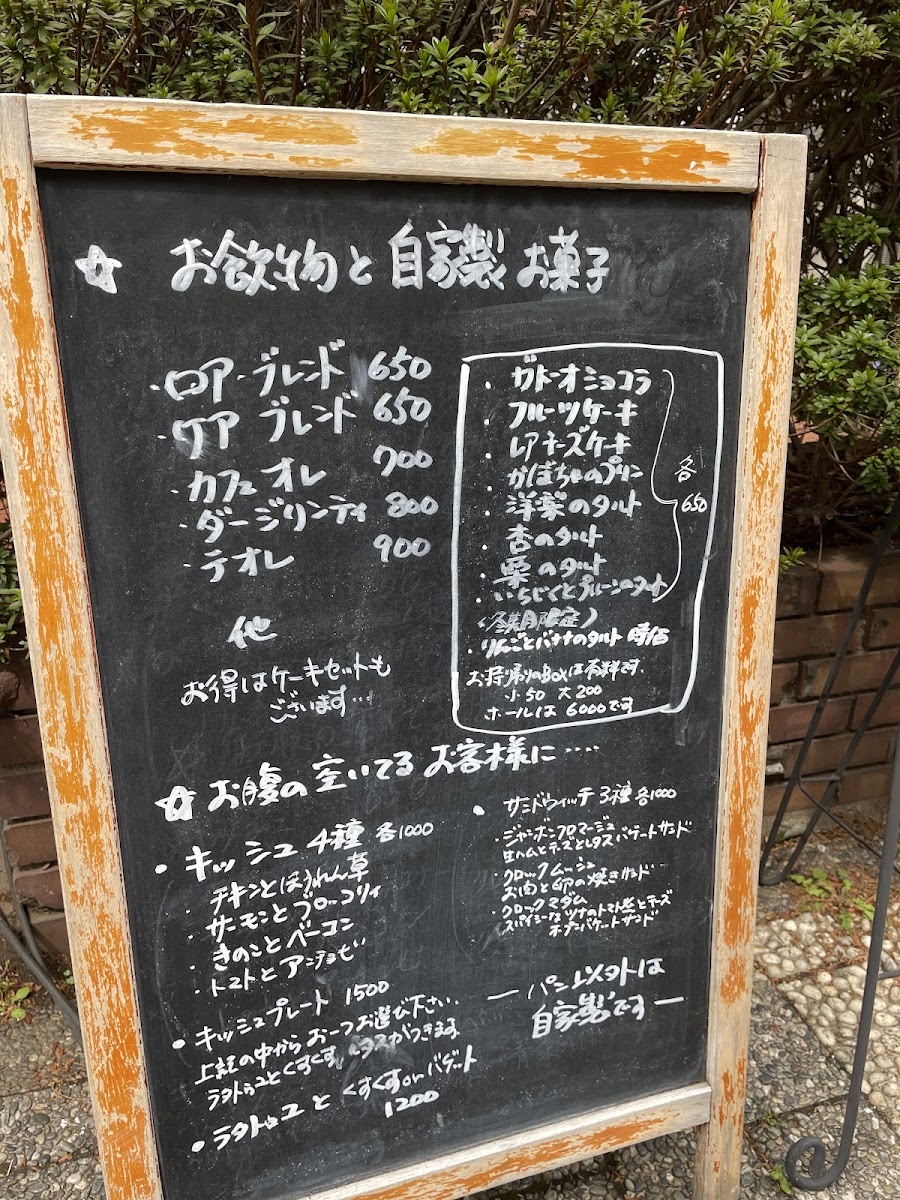 ☆ お飲物と自家製お菓子
・ロア・ブレンド 650
・ケア ブレンド 650
・カフェオレ 700
・ダージリンティ 800
・テオレ 900
他
お得はケーキセットも
ございます…
・ガトーオショコラ
・フルーツケーキ
・レアチーズケーキ
・かぼちゃのプリン
・洋梨のタルト
・杏のタルト
・栗のタルト
・いちじくとプルーンのタルト
各650
(冬期限定)
・りんごとバナナのタルト 時価
お持帰りのBoxは有料です.
小50 大200
ホールは6000です
☆ お腹の空いてるお客様に....
・キッシュ4種 各1000
・チキンとほうれん草
・サーモンとブロッコリィ
・きのことベーコン
・トマトとアンチョビ
・キッシュプレート 1500
上記の中からお一つお選び下さい.
ラタトゥユとくすくす, レタスがつきます
・ラタトゥユとくすくすorバゲット
1200
・サンドウィッチ3種 各1000
・ジャンボンフロマージュ
生ハムとチーズとレタスバゲートサンド
・クロックムッシュ
お肉と卵の焼きサンド
・クロックマダム
スパイシーなツナのトマト煮とチーズ
オープンバゲットサンド
―パン以外は
自家製です―